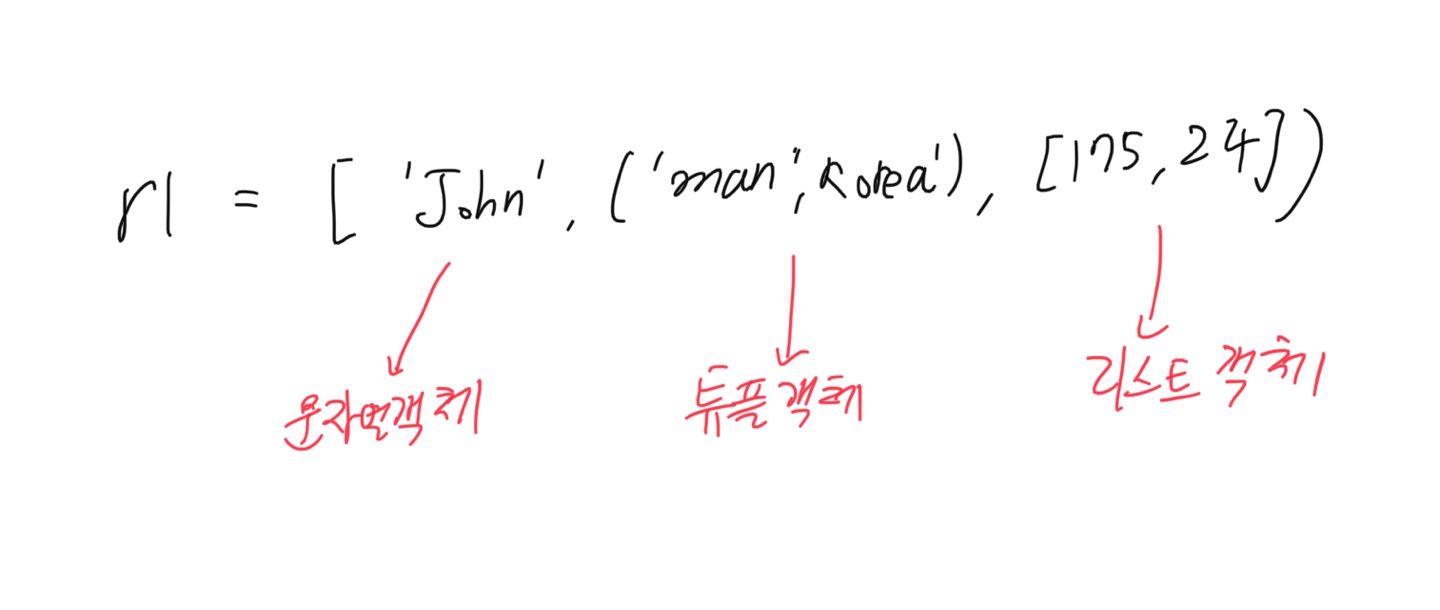 r1 = [ 'John', ('man','Korea'), [175, 24])
문자열객체 튜플객체 리스트 객체